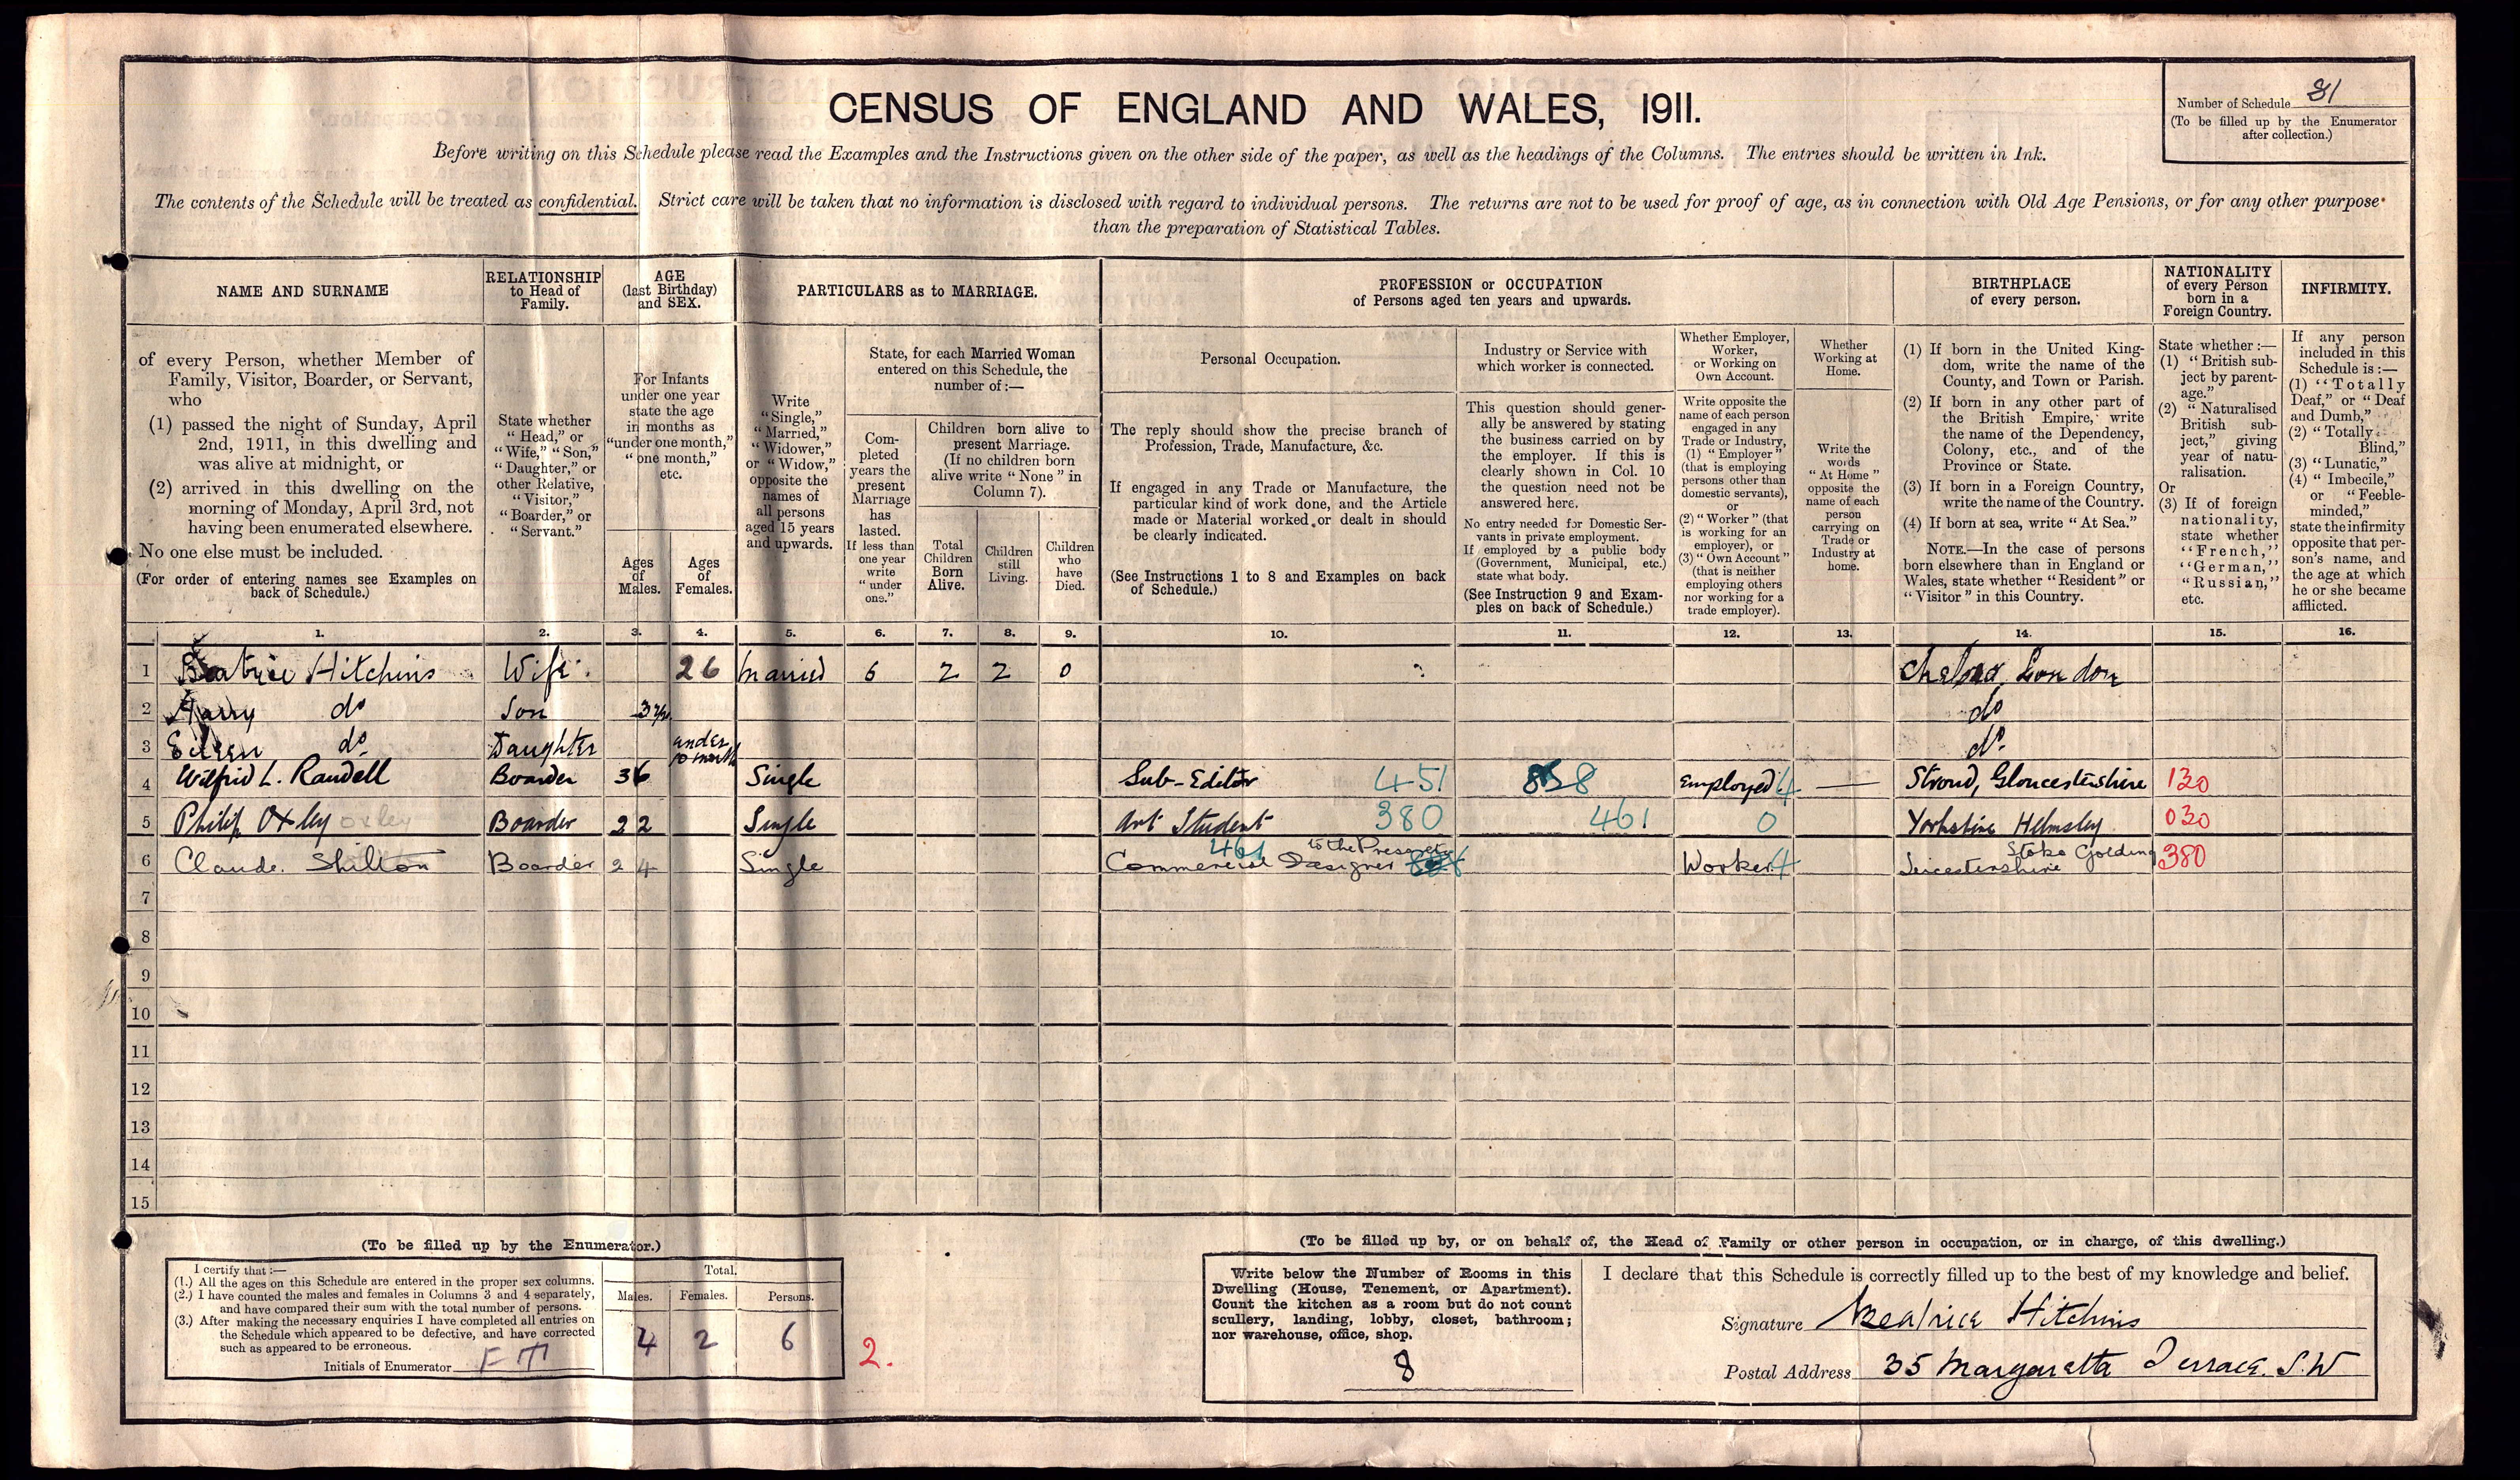 CENSUS OF ENGLAND AND WALES, 1911.
Number of Schedule 81
(To be filled up by the Enumerator
after collection.)
Before writing on this Schedule please read the Examples and the Instructions given on the other side of the paper, as well as the headings of the Columns. The entries should be written in Ink.
The contents of the Schedule will be treated as confidential. Strict care will be taken that no information is disclosed with regard to individual persons. The returns are not to be used for proof of age, as in connection with Old Age Pensions, or for any other purpose
than the preparation of Statistical Tables.
NAME AND SURNAME
of every Person, whether Member of
Family, Visitor, Boarder, or Servant,
who
(1) passed the night of Sunday, April
2nd, 1911, in this dwelling and
was alive at midnight, or
(2) arrived in this dwelling on the
morning of Monday, April 3rd, not
having been enumerated elsewhere.
No one else must be included.
(For order of entering names see Examples on
back of Schedule.)
RELATIONSHIP
to Head of
Family.
State whether
"Head," or
"Wife," "Son,"
"Daughter," or
other Relative,
"Visitor,"
"Boarder," or
"Servant."
AGE
(last Birthday)
and SEX.
For Infants
under one year
state the age
in months as
"under one month,"
"one month,"
etc.
Ages
of
Males.
Ages
of
Females.
PARTICULARS as to MARRIAGE.
Write
"Single,"
"Married,"
"Widower,"
or "Widow,"
opposite the
names of
all persons
aged 15 years
and upwards.
State, for each Married Woman
entered on this Schedule, the
number of:—
Com-
pleted
years the
present
Marriage
has
lasted.
If less than
one year
write
"under
one."
Children born alive to
present Marriage.
(If no children born
alive write "None" in
Column 7).
Total
Children
Born
Alive.
Children
still
Living.
Children
who
have
Died.
PROFESSION or OCCUPATION
of Persons aged ten years and upwards.
Personal Occupation.
The reply should show the precise branch of
Profession, Trade, Manufacture, &c.
If engaged in any Trade or Manufacture, the
particular kind of work done, and the Article
made or Material worked or dealt in should
be clearly indicated.
(See Instructions 1 to 8 and Examples on back
of Schedule.)
Industry or Service with
which worker is connected.
This question should gener-
ally be answered by stating
the business carried on by
the employer. If this is
clearly shown in Col. 10
the question need not be
answered here.
No entry needed for Domestic Ser-
vants in private employment.
If employed by a public body
(Government, Municipal, etc.)
state what body.
(See Instruction 9 and Exam-
ples on back of Schedule.)
Whether Employer,
Worker,
or Working on
Own Account.
Write opposite the
name of each person
engaged in any
Trade or Industry,
(1) "Employer"
(that is employing
persons other than
domestic servants),
or
(2) "Worker" (that
is working for an
employer), or
(3) "Own Account"
(that is neither
employing others
nor working for a
trade employer).
Whether
Working at
Home.
Write the
words
"At Home"
opposite the
name of each
person
carrying on
Trade or
Industry at
home.
BIRTHPLACE
of every person.
(1) If born in the United King-
dom, write the name of the
County, and Town or Parish.
(2) If born in any other part of
the British Empire, write
the name of the Dependency,
Colony, etc., and of the
Province or State.
(3) If born in a Foreign Country,
write the name of the Country.
(4) If born at sea, write "At Sea."
NOTE.—In the case of persons
born elsewhere than in England or
Wales, state whether "Resident" or
"Visitor" in this Country.
NATIONALITY
of every Person
born in a
Foreign Country.
State whether :—
(1) "British sub-
ject by parent-
age."
(2) "Naturalised
British sub-
ject," giving
year of natu-
ralisation.
Or
(3) If of foreign
nationality,
state whether
"French,"
"German,"
"Russian,"
etc.
INFIRMITY.
If any person
included in this
Schedule is :—
(1) "Totally
Deaf," or "Deaf
and Dumb,"
(2) "Totally
Blind,"
(3) "Lunatic,"
(4) "Imbecile,"
or "Feeble-
minded,"
state the infirmity
opposite that per-
son's name, and
the age at which
he or she became
afflicted.
1. 2. 3. 4. 5. 6. 7. 8. 9. 10. 11. 12. 13. 14. 15. 16.
1 Beatrice Hitchins Wife 26 Married 6 2 2 0 Chelsea London
2 Harry do Son 3 do
3 Eileen do Daughter under 10 month do
4 Wilfrid L. Randell Boarder 36 Single Sub-Editor 451 8 Employed 4 — Stroud, Gloucestershire 130
5 Philip Oxley oxley Boarder 22 Single Art Student 380 461 0 Yorkshire Helmsley 030
6 Claude Shilton Boarder 24 Single Commercial Designer to the 461 Worker 4 Leicestershire Stoke Golding 380
7
8
9
10
11
12
13
14
15
(To be filled up by the Enumerator.)
I certify that :—
(1.) All the ages on this Schedule are entered in the proper sex columns.
(2.) I have counted the males and females in Columns 3 and 4 separately,
and have compared their sum with the total number of persons.
(3.) After making the necessary enquiries I have completed all entries on
the Schedule which appeared to be defective, and have corrected
such as appeared to be erroneous.
Initials of Enumerator FT
Total.
Males. Females. Persons.
4 2 6
2.
(To be filled up by, or on behalf of, the Head of Family or other person in occupation, or in charge, of this dwelling.)
Write below the Number of Rooms in this
Dwelling (House, Tenement, or Apartment).
Count the kitchen as a room but do not count
scullery, landing, lobby, closet, bathroom;
nor warehouse, office, shop.
8
I declare that this Schedule is correctly filled up to the best of my knowledge and belief.
Signature Beatrice Hitchins
Postal Address 35 Margaretta Terrace. S.W